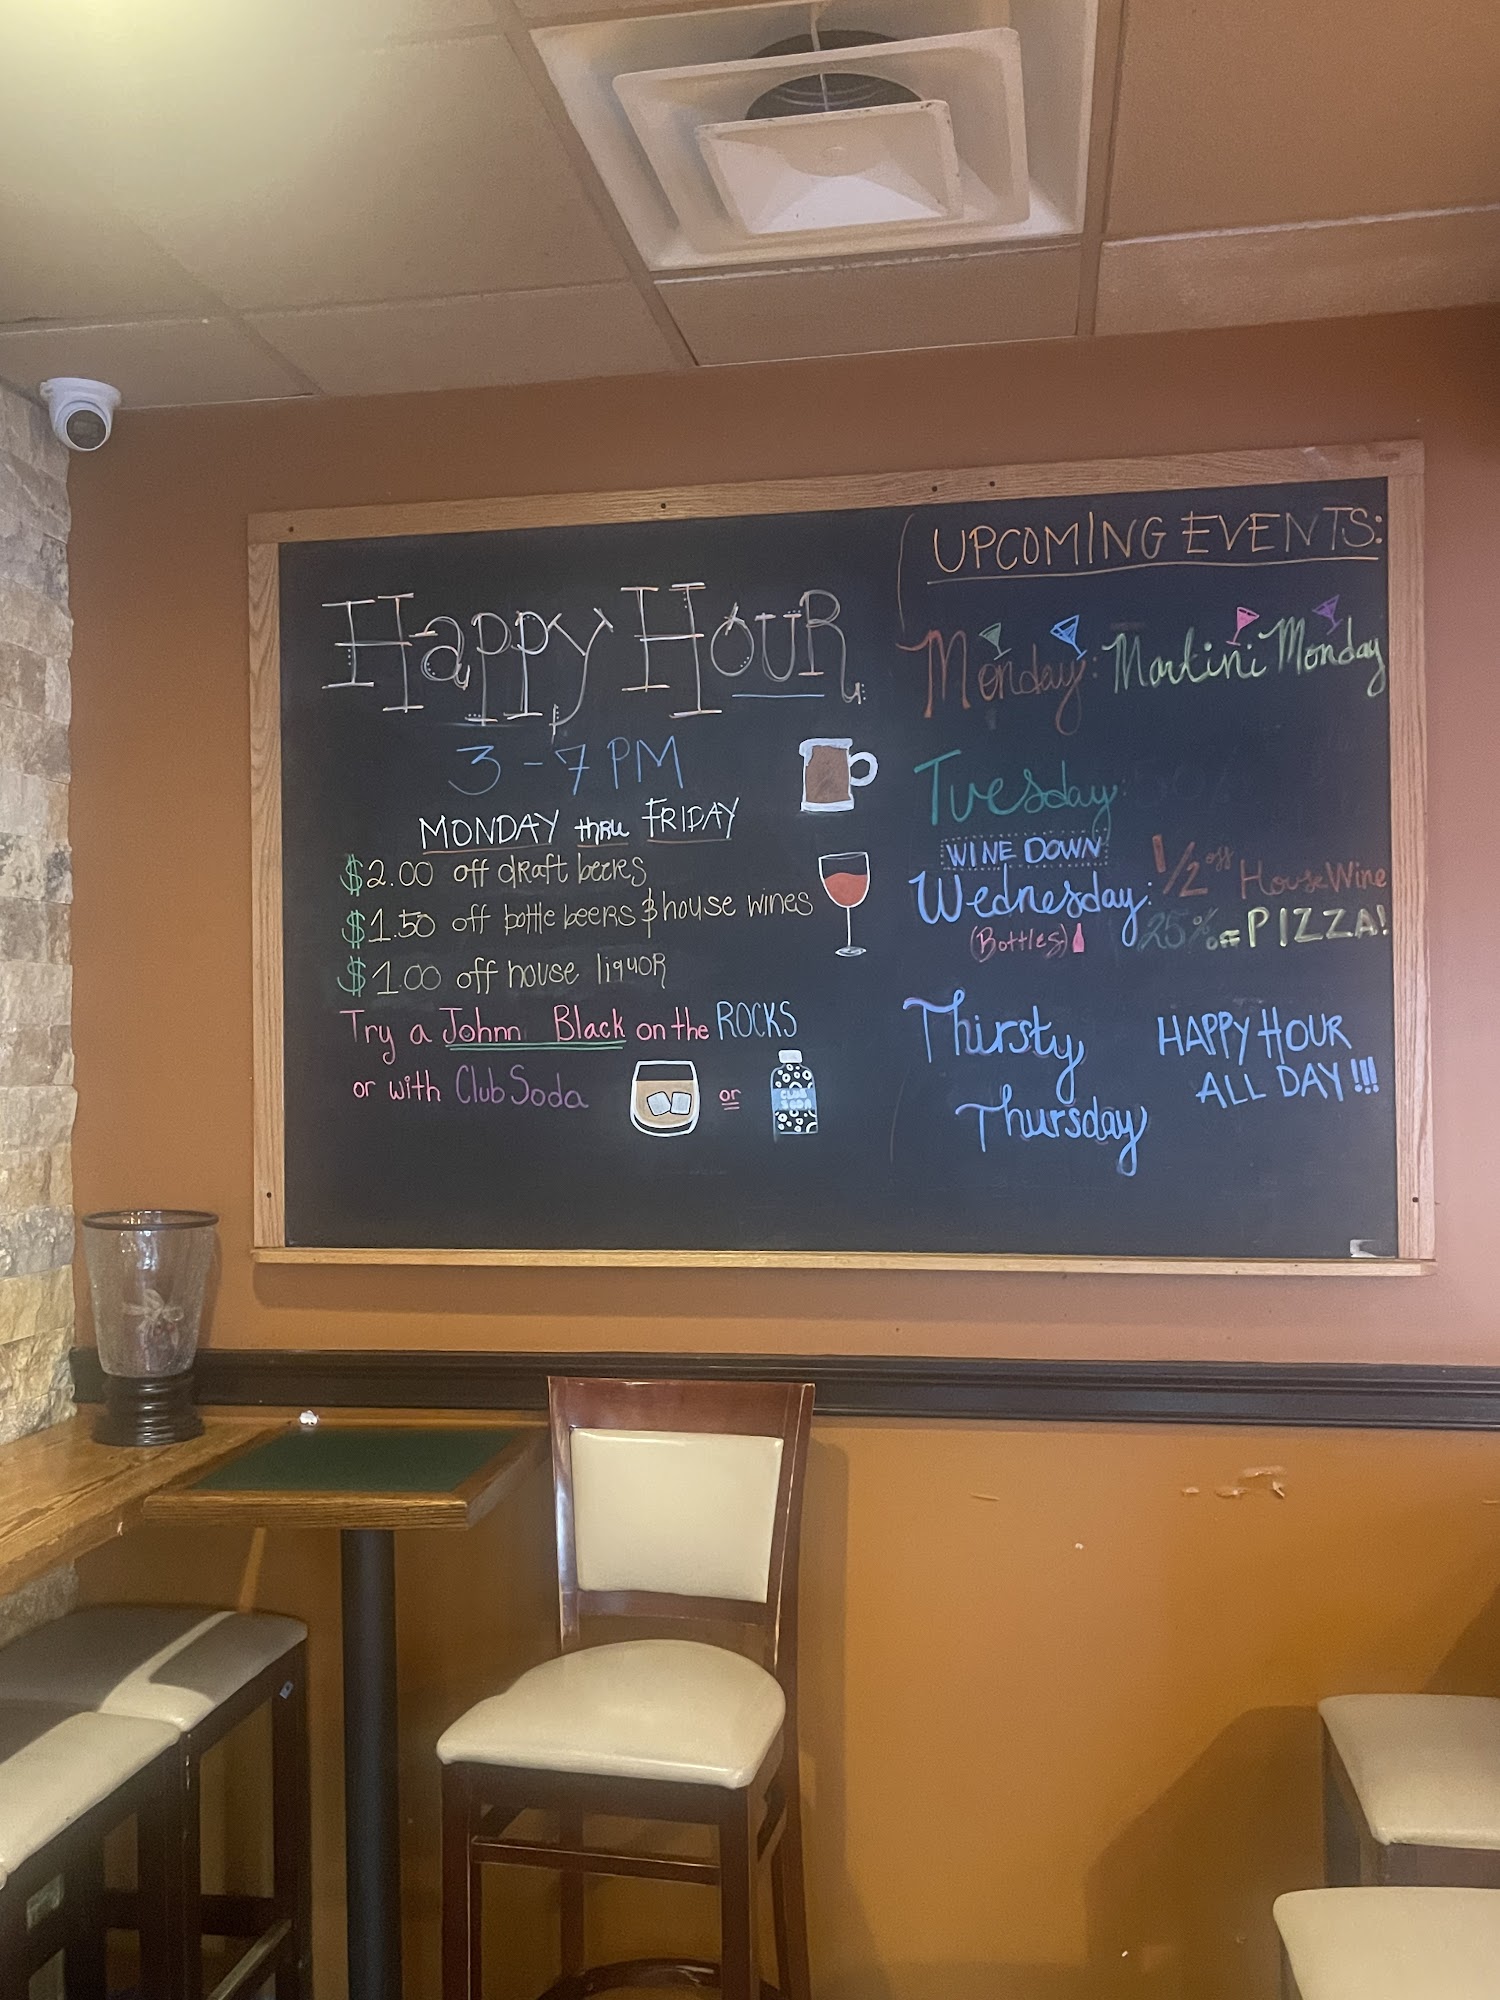 Happy Hour
3-7 PM
MONDAY thru FRIDAY
$2.00 off draft beers
$1.50 off bottle beers & house wines
$1.00 off house liquor
Try a Johnn Black on the ROCKS
or with Club Soda
or
CLUB
SODA
UPCOMING EVENTS:
Monday: Martini Monday
Tuesday:
WINE DOWN
Wednesday: 1/2 off House Wine
(Bottles) 25% off PIZZA!
Thirsty
Thursday
HAPPY HOUR
ALL DAY!!!